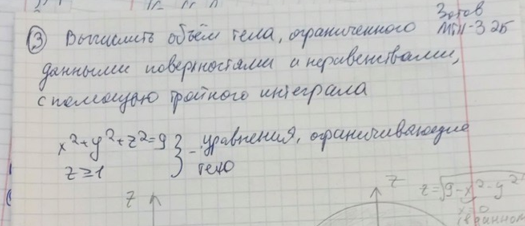 Зотов
③ Вычислить объём тела, ограниченного
данными поверхностями и неравенствами,
с помощью тройного интеграла
x²+y²+z²=9
z≥1
} - уравнения, ограничивающие
тело
z
z
z=√9-x²-y²